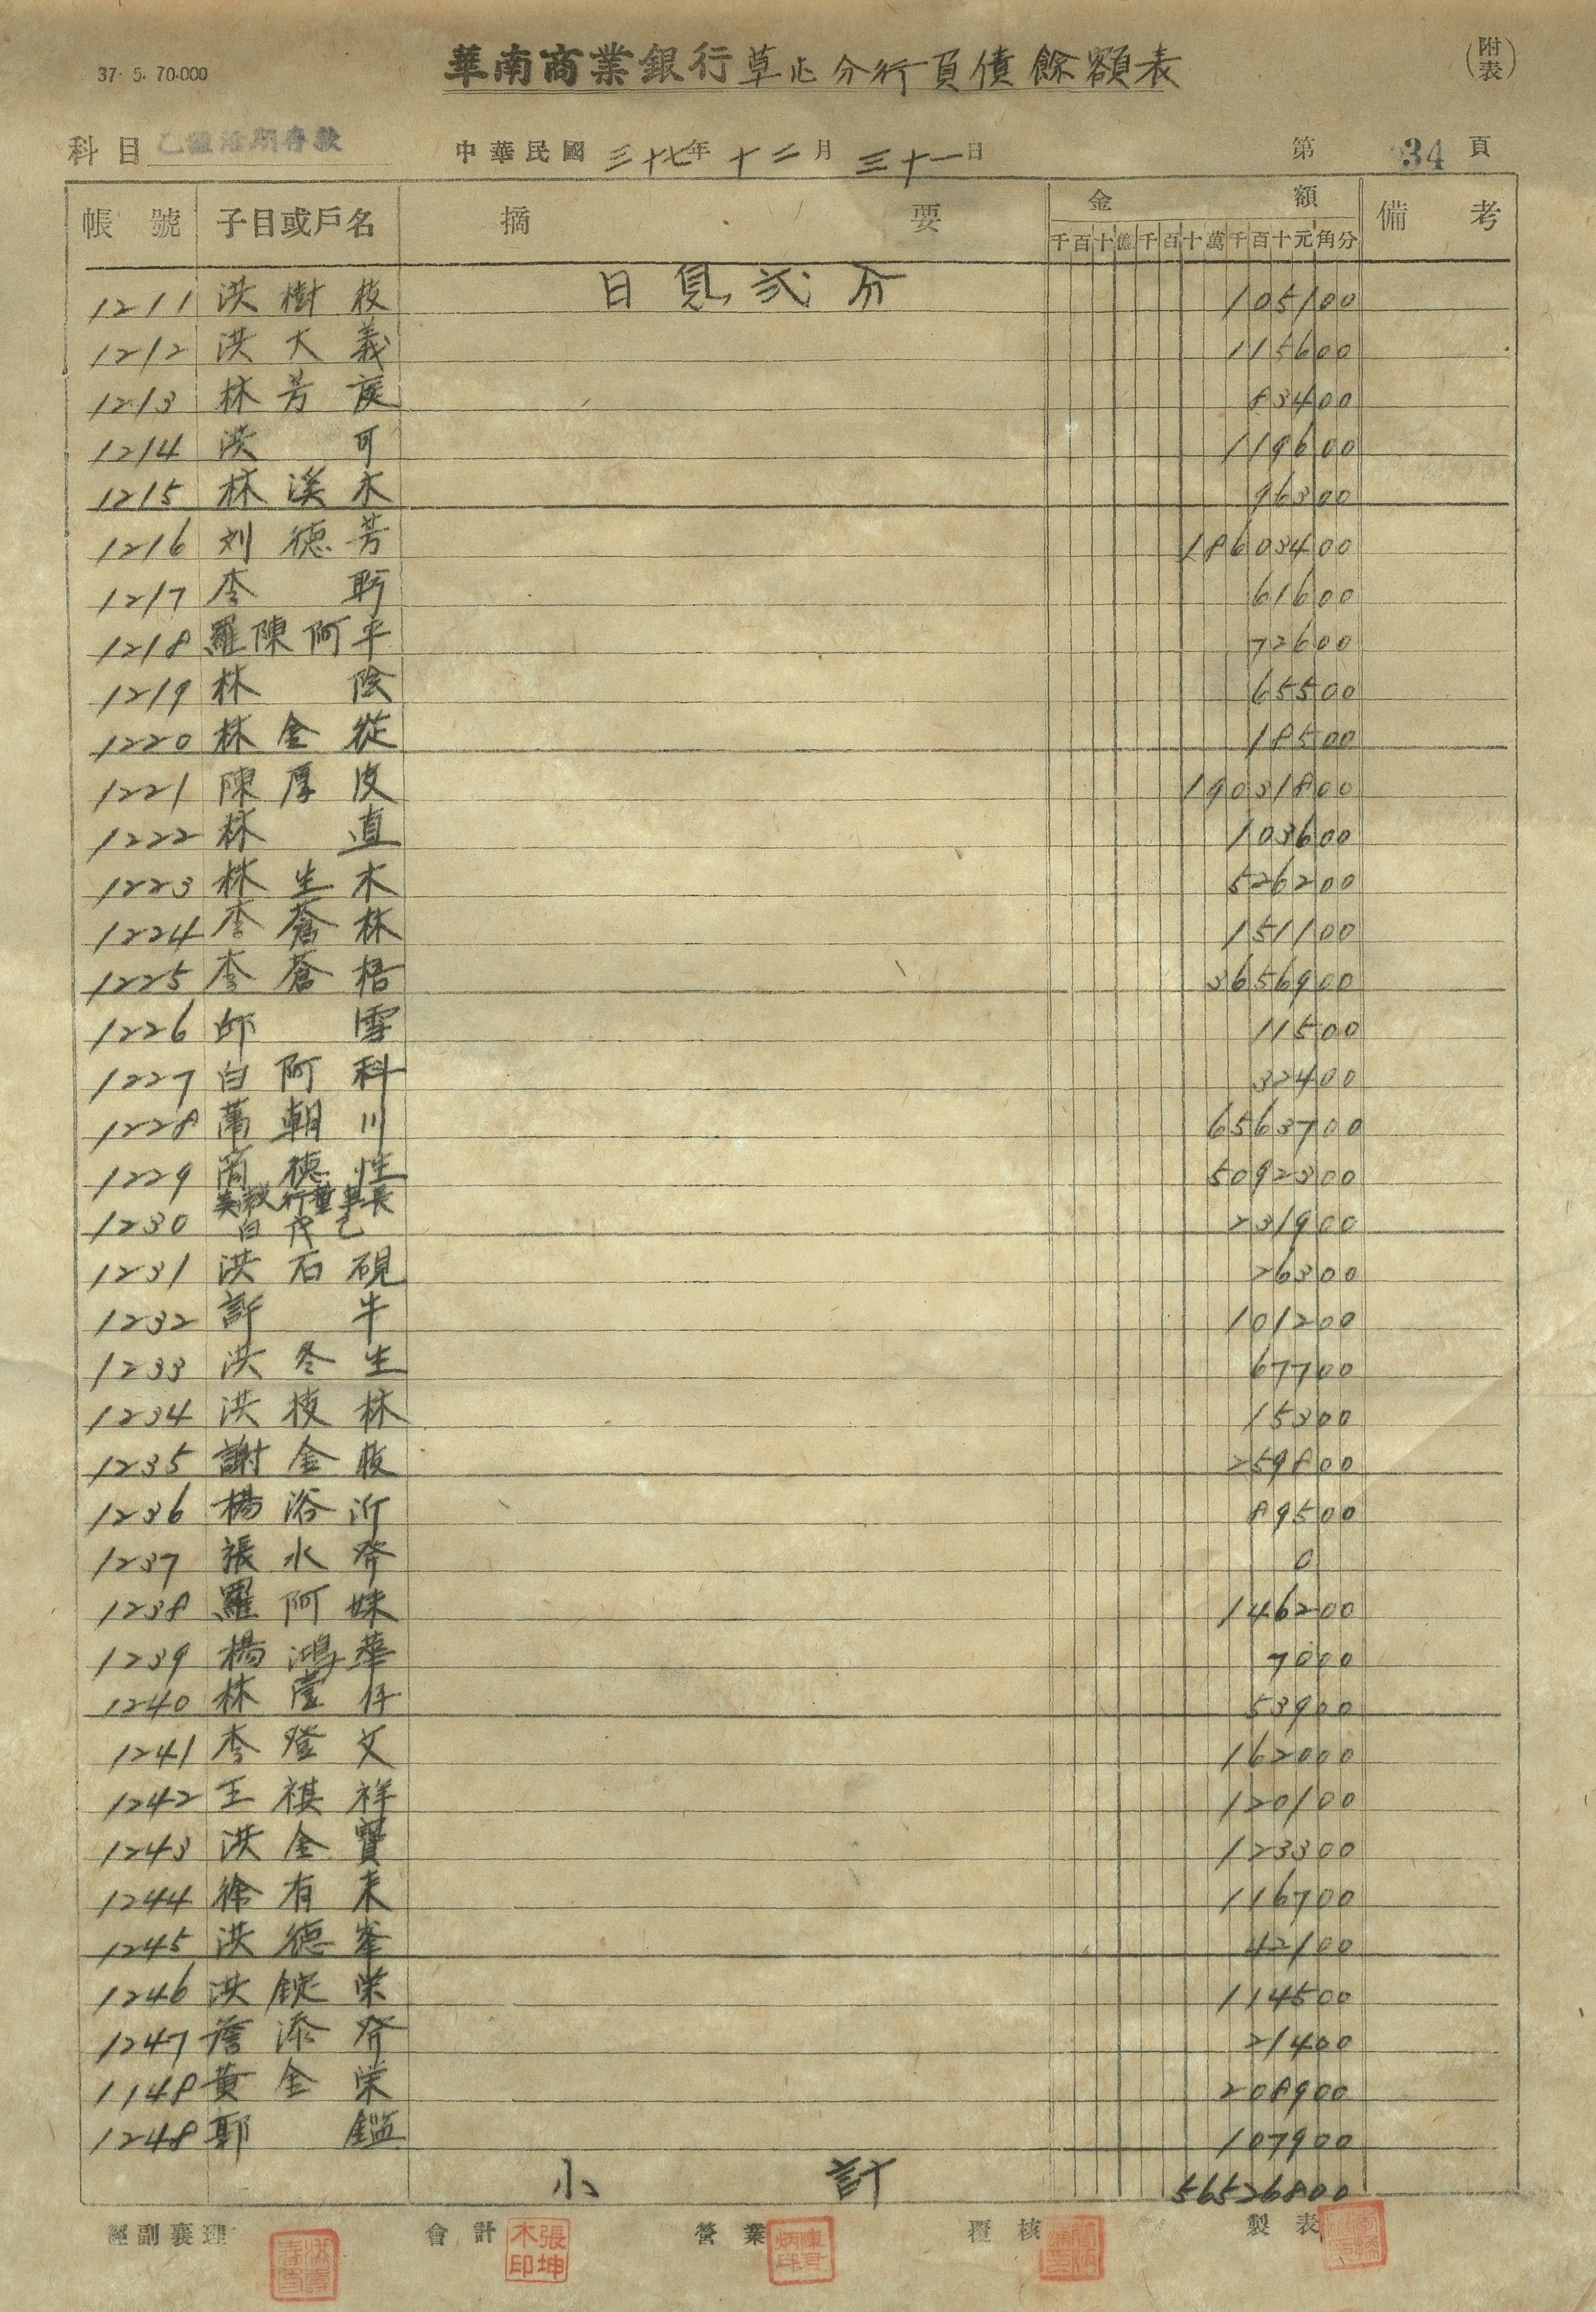 37. 5. 70.000
華南商業銀行草屯分行負債餘額表
(附表)
科目 乙種活期存款 中華民國 三十七年 十二月 三十一日 第 34 頁
帳號 子目或戶名 摘要 金額 備考
千百十億千百十萬千百十元角分
日息弍分
1211 洪樹枝 105100
1212 洪大義 115600
1213 林芳 83400
1214 洪可 119600
1215 林溪木 96300
1216 刘德芳 18603400
1217 李 61600
1218 羅陳阿平 72600
1219 林陰 65500
1220 林金從 18500
1221 陳厚皮 19031800
1222 林直 103600
1223 林生木 526200
1224 李蒼林 151100
1225 李蒼梧 3656900
1226 雪 11500
1227 白阿科 32400
1228 萬朝川 6563700
1229 簡德性 5092300
1230 白戊己 231900
1231 洪石硯 26300
1232 許牛 101200
1233 洪冬生 67700
1234 洪枝林 15300
1235 謝金枝 259800
1236 楊浴沂 89500
1237 張水發 0
1238 羅阿妹 146200
1239 楊鴻華 7000
1240 林仔 53900
1241 李燈文 162000
1242 王祺祥 120100
1243 洪金賢 123300
1244 徐有来 116700
1245 洪德峯 42100
1246 洪錠栄 114500
1247 詹添發 21400
1148 黃金栄 208900
1248 郭鑑 107900
小計 56526800
經副襄理 會計 張坤木印 營業 覆核 製表